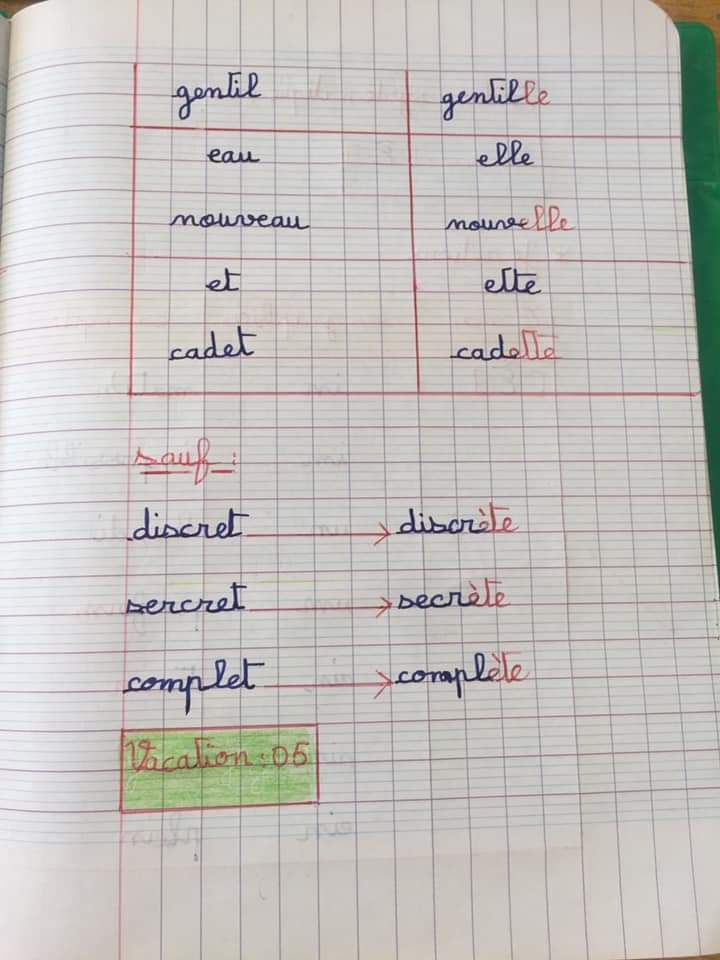 gentil gentille
eau elle
nouveau nouvelle
et ette
cadet cadette
sauf :
discret → discrète
sercret → secrète
complet → complète
Vacation : 05